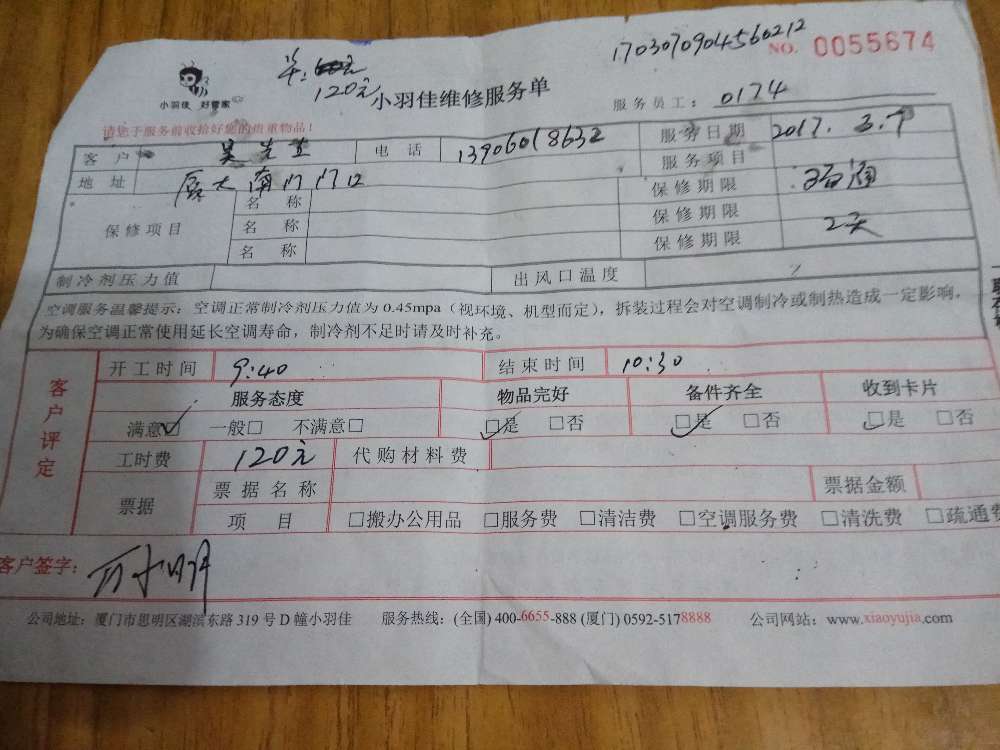 1703070904560212
NO. 0055674
单:
120元
小羽佳 好管家
小羽佳维修服务单
服务员工: 0174
请您于服务前收拾好您的贵重物品!
客户 吴先生 电话 13906018632 服务日期 2017.3.7
地址 厦大南门门口 服务项目
保修项目 名称 保修期限
名称 保修期限
名称 保修期限 2天
制冷剂压力值 出风口温度
空调服务温馨提示: 空调正常制冷剂压力值为 0.45mpa (视环境、机型而定), 拆装过程会对空调制冷或制热造成一定影响,
为确保空调正常使用延长空调寿命, 制冷剂不足时请及时补充。
客户评定
开工时间 9:40 结束时间 10:30
服务态度 物品完好 备件齐全 收到卡片
满意☑ 一般□ 不满意□ ☑是 □否 ☑是 □否 ☑是 □否
工时费 120元 代购材料费
票据 票据名称 票据金额
项目 □搬办公用品 □服务费 □清洁费 □空调服务费 □清洗费 □疏通费
客户签字:
公司地址: 厦门市思明区湖滨东路 319 号 D 幢小羽佳 服务热线: (全国) 400-6655-888 (厦门) 0592-5178888 公司网站: www.xiaoyujia.com